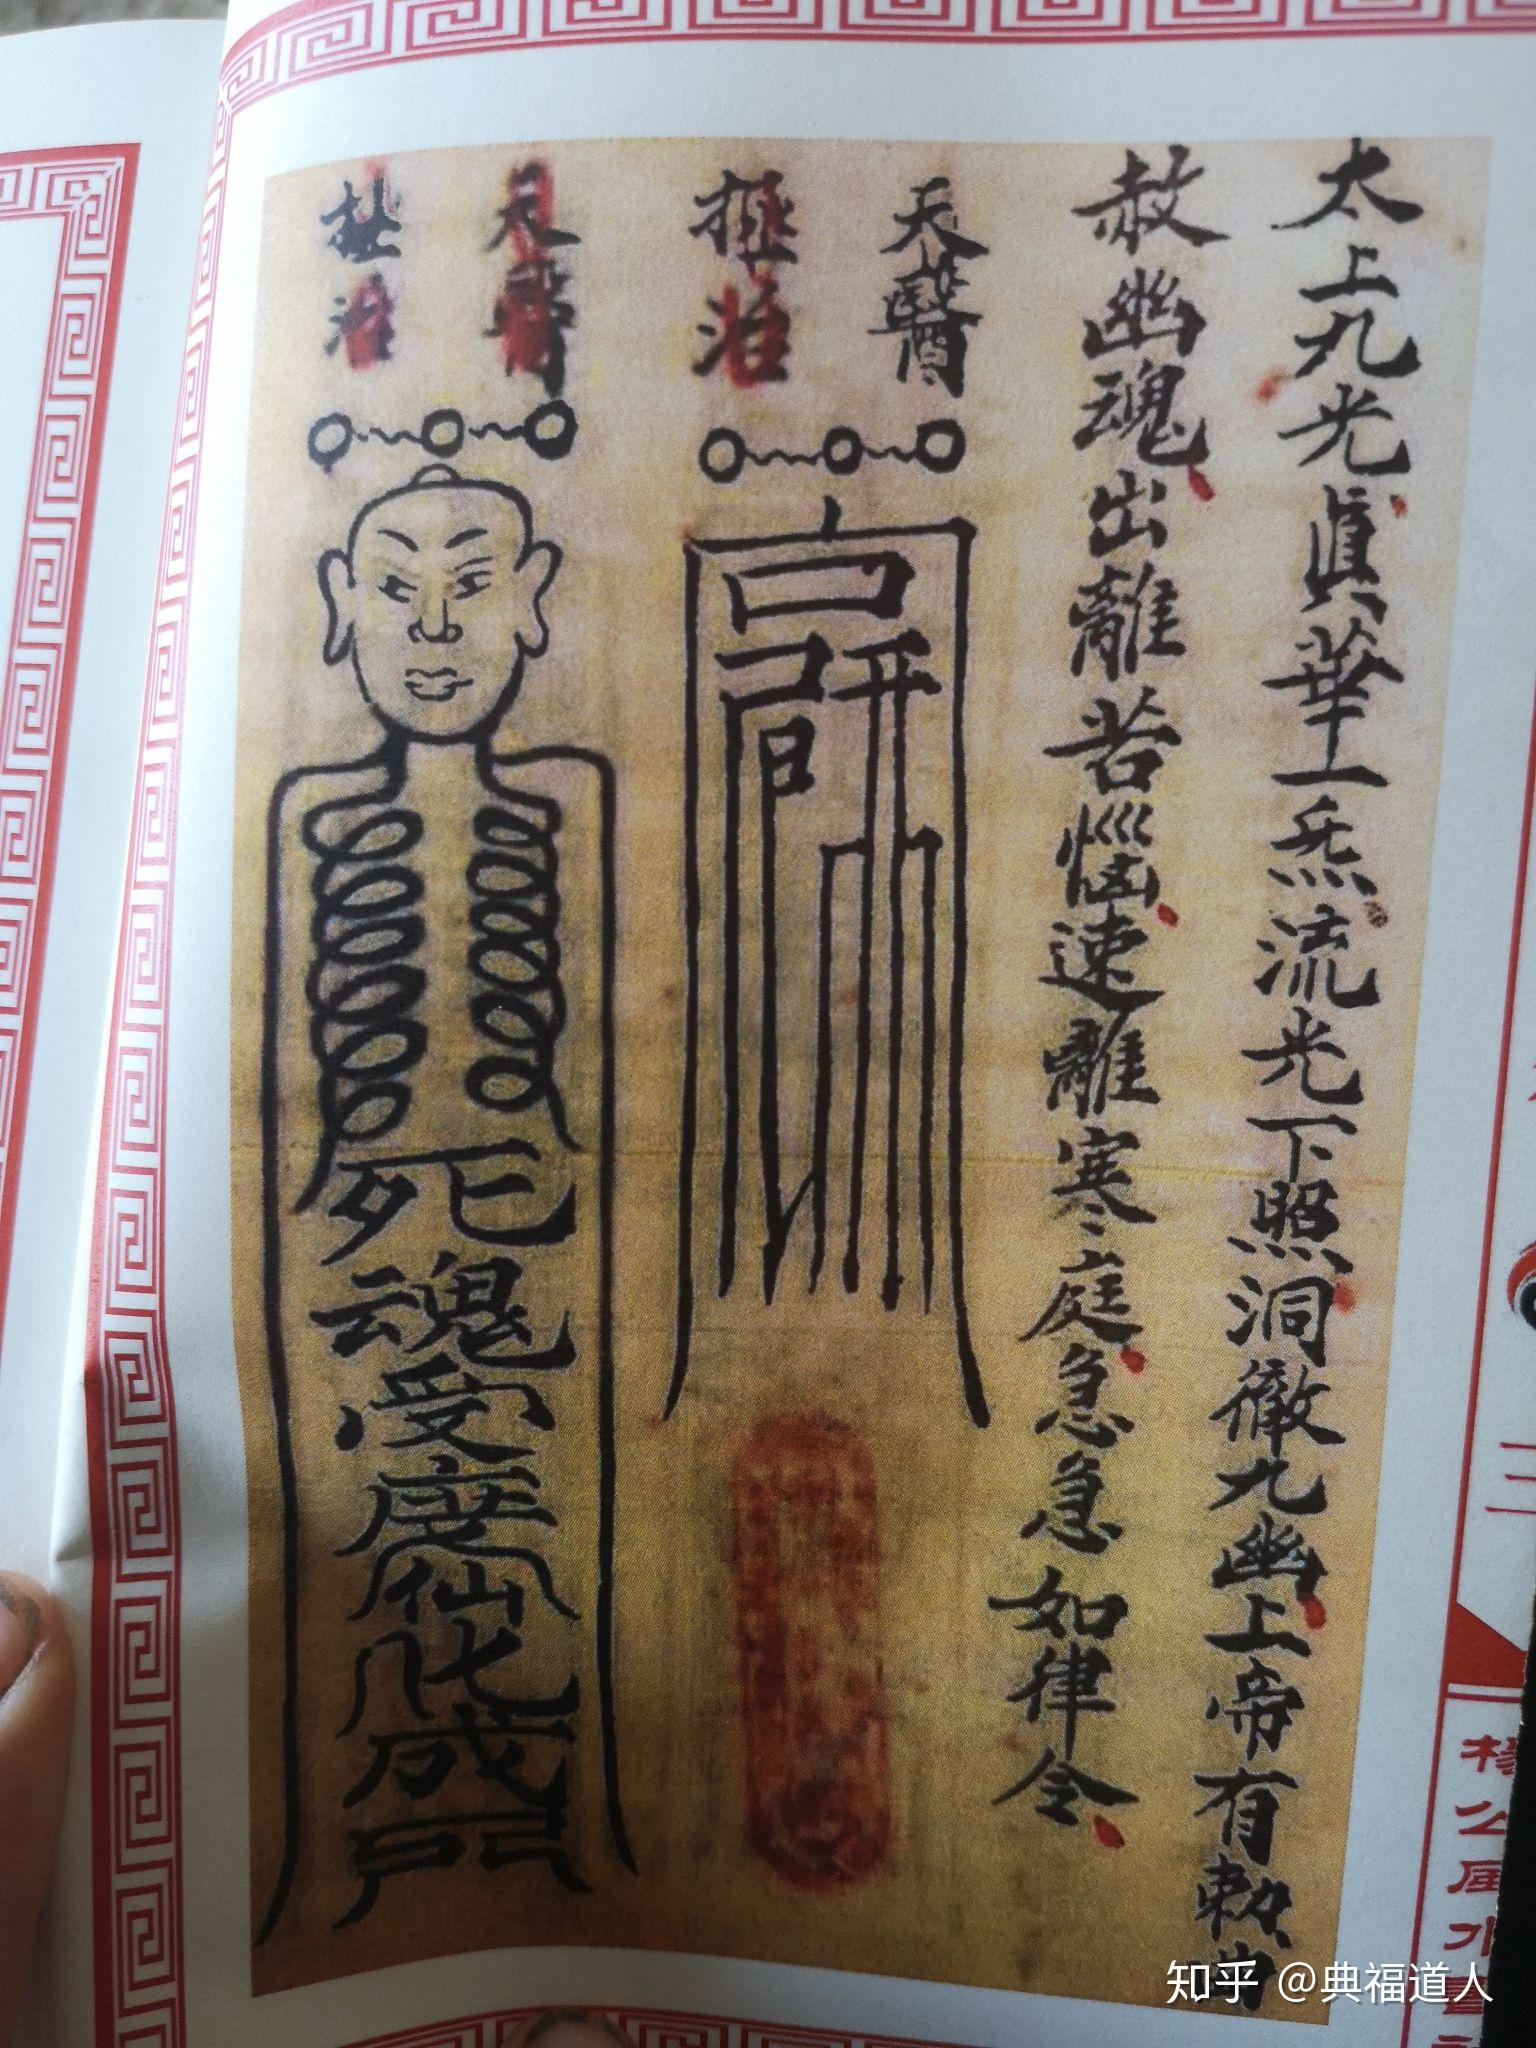 太上九光真華一炁流光下照洞徹九幽上帝有勅曲
赦幽魂出離苦惱速離寒庭急急如律令
天醫
拯治
天醫
拯治
死魂受度仙化成門
楊公風水
知乎 @典福道人